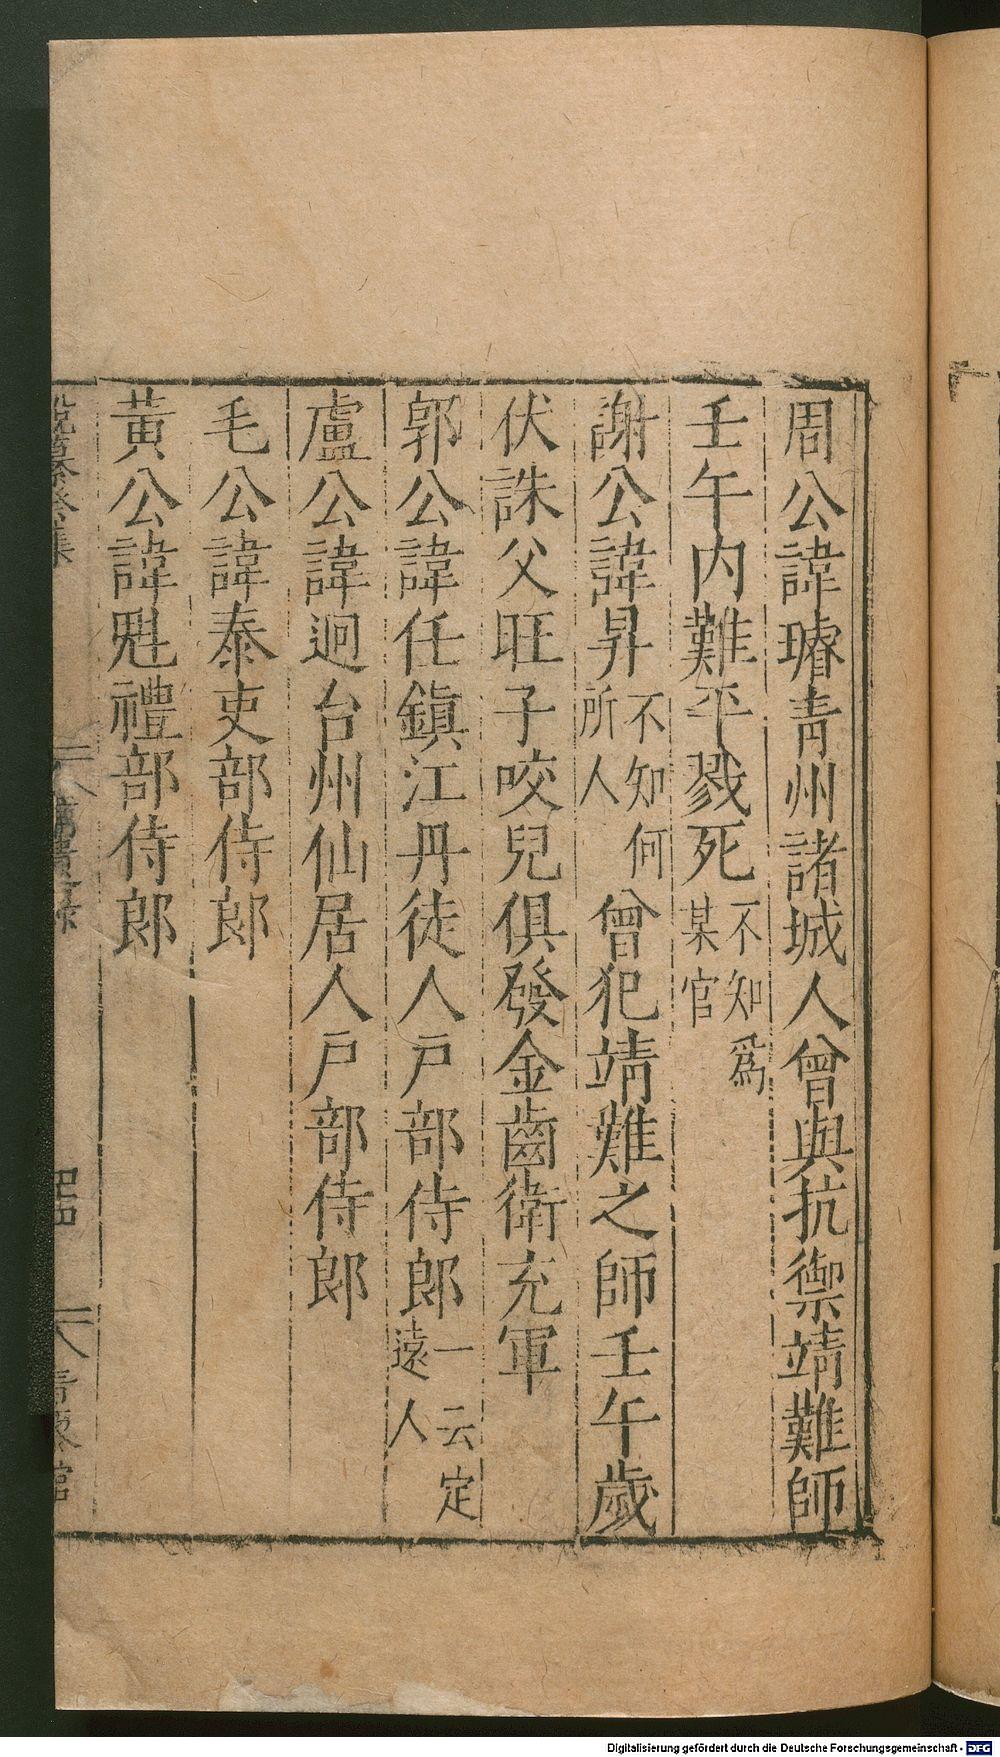 周公諱璿青州諸城人曾與抗禦靖難師
壬午内難平戮死不知爲某官
謝公諱昇不知何所人曾犯靖難之師壬午歲
伏誅父旺子咬兒俱發金齒衛充軍
郭公諱任鎮江丹徒人戸部侍郎一云定遠人
盧公諱迥台州仙居人戸部侍郎
毛公諱泰吏部侍郎
黃公諱魁禮部侍郎
Digitalisierung gefördert durch die Deutsche Forschungsgemeinschaft - DFG